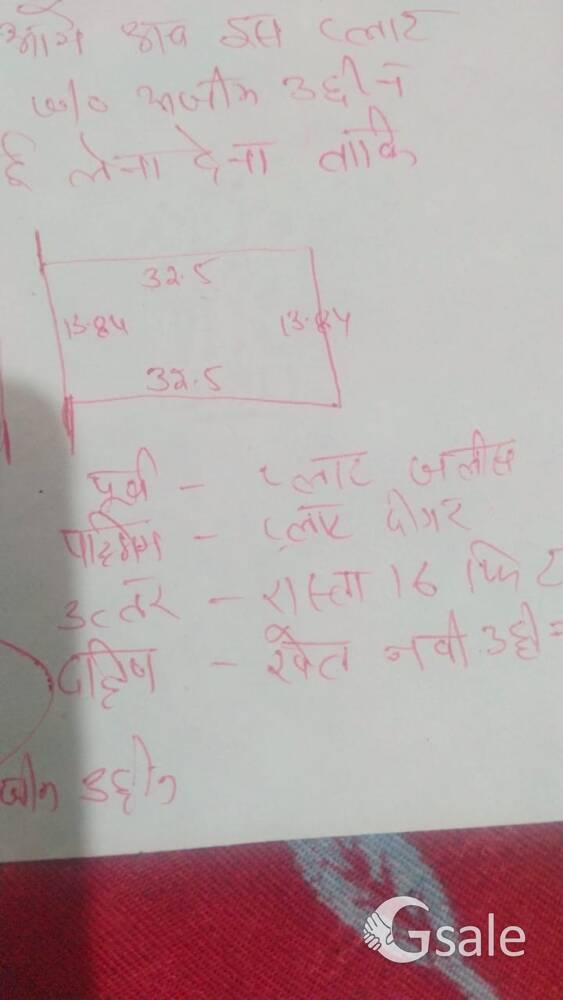 आगे अब इस प्लाट
w/o अजीम उद्दीन
ई लेना देना ताकि
32.5
13.84 13.84
32.5
पूर्व - प्लाट जलीस
पश्चिम - प्लाट दीगर
उत्तर - रास्ता 16 फिट
दक्षिण - खेत नबी उद्दीन
उद्दीन
Gsale